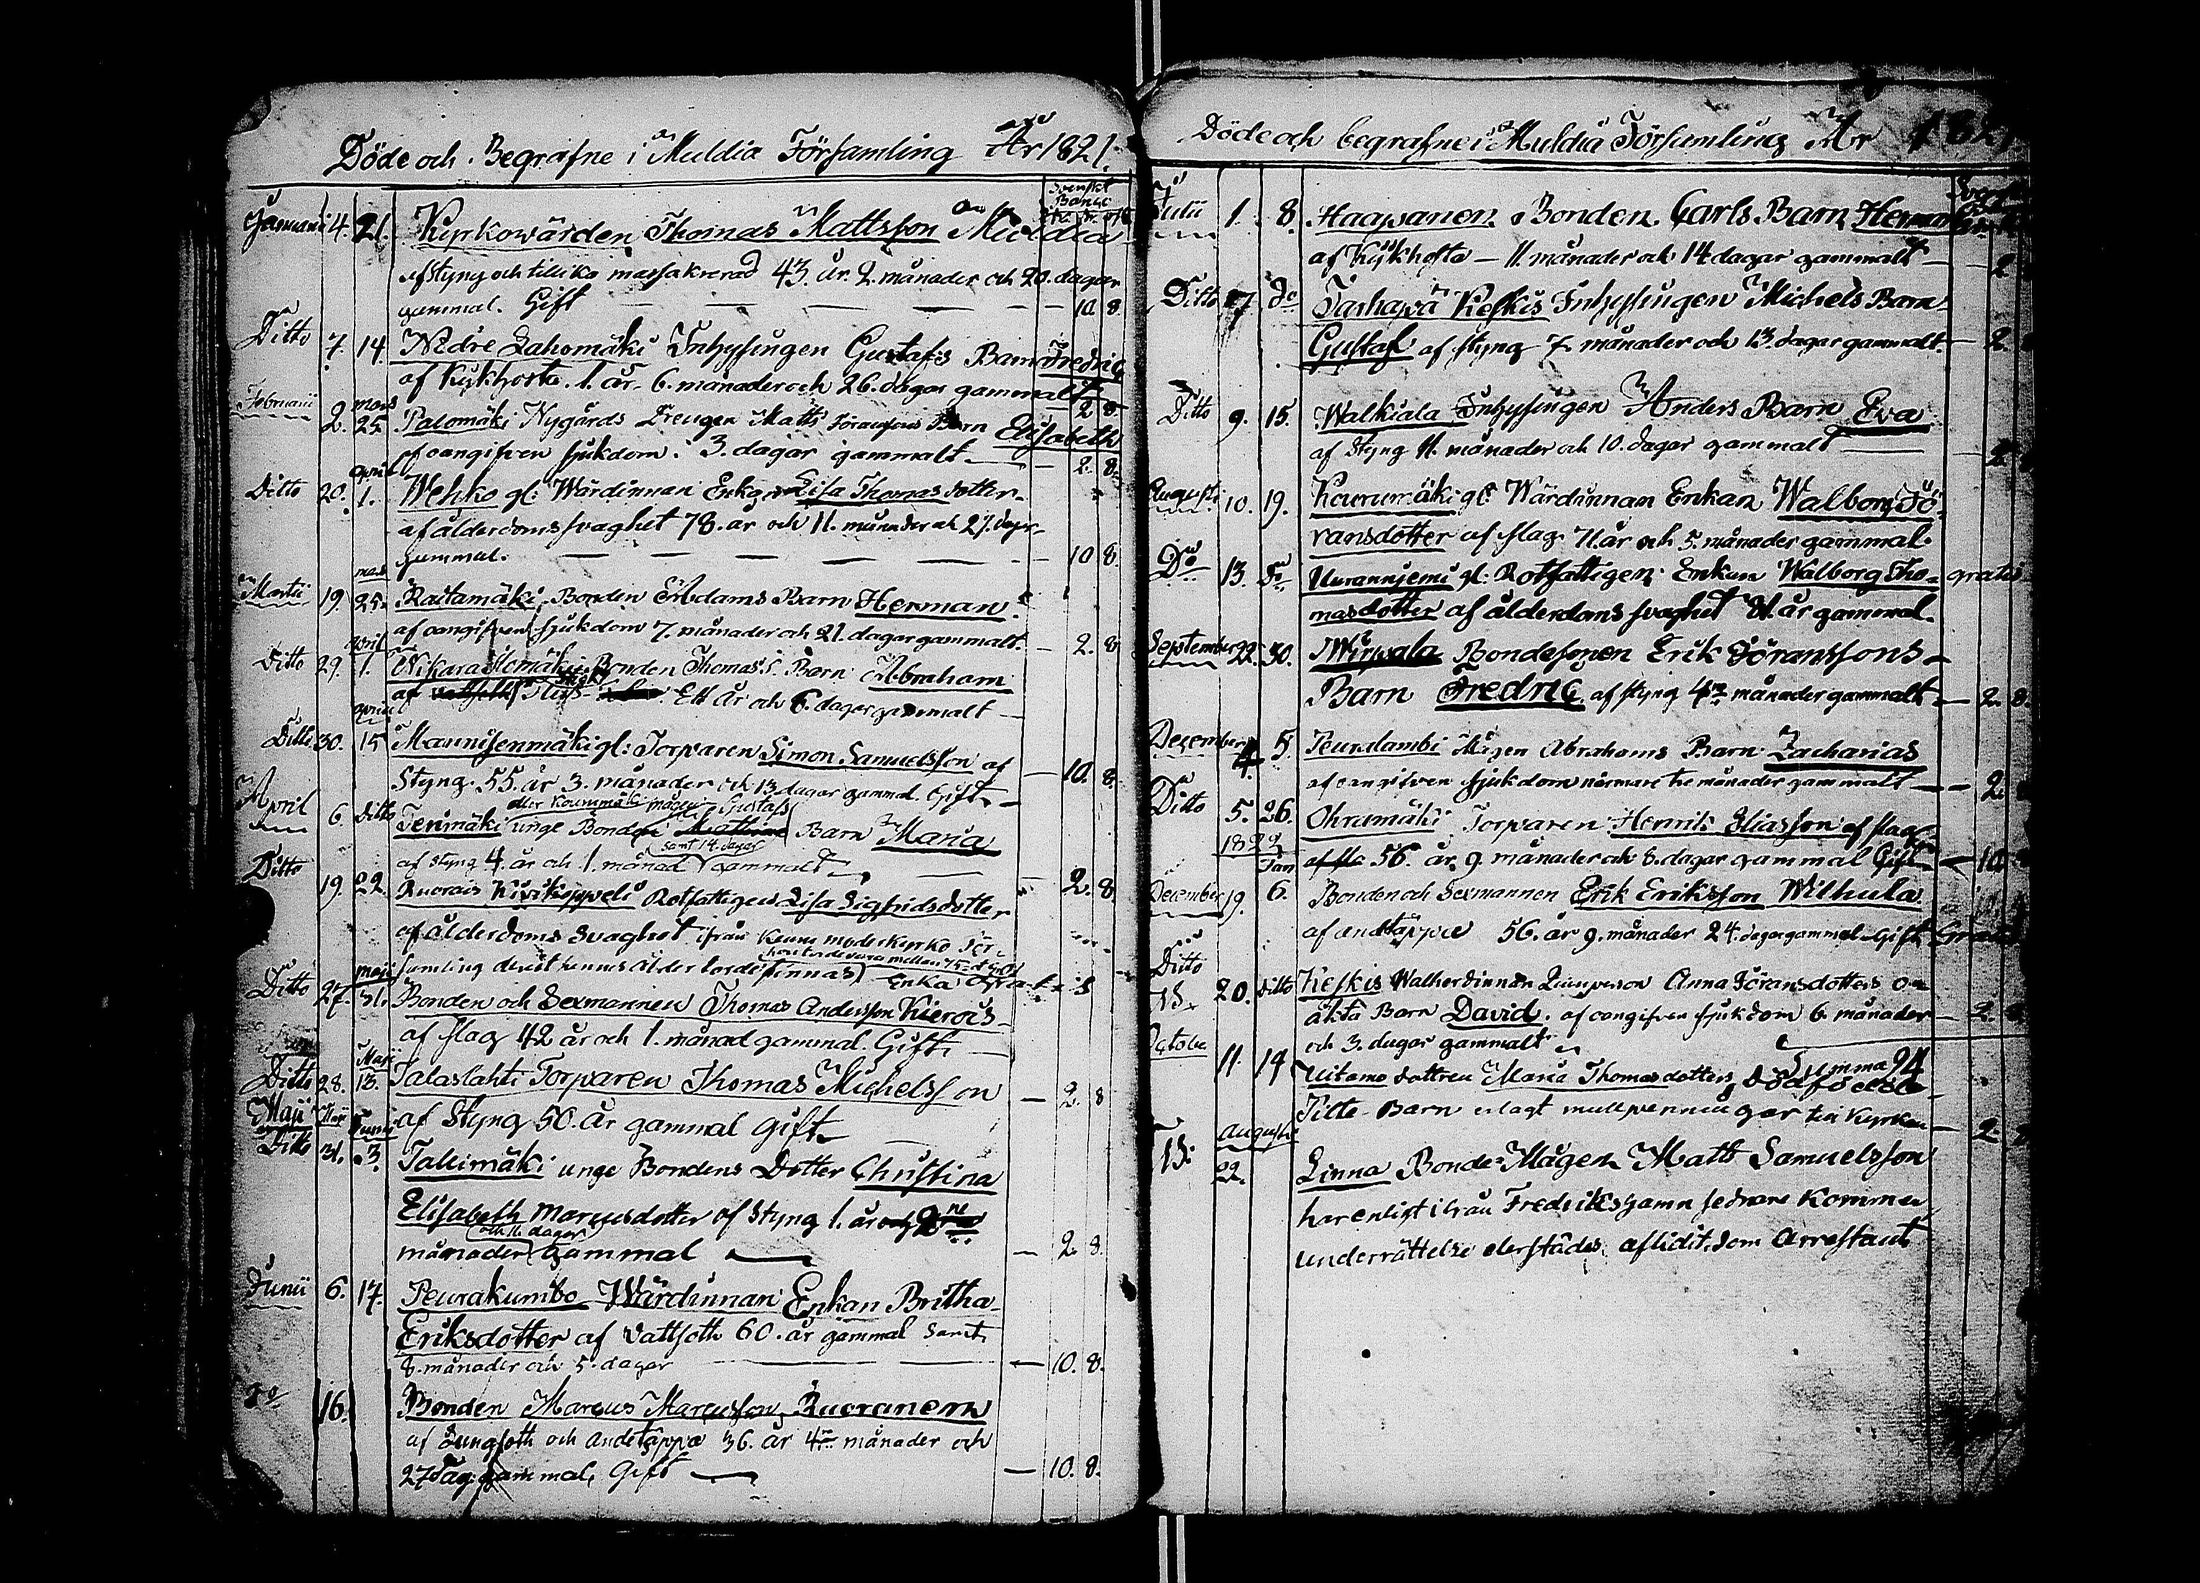 Döde och Begrafne i Muldia Församling År 1821.
Svenskt
Banco
Januarii 4. 21. Kyrkowärden Thomas Mattsson Muldia
af styng och tillika massakrerad 43. år. 2. månader och 20. dagar
gammal. Gift — 10 8.
Ditto 7. 14. Nedre Lahomäki Inhysingen Gustafs Barn Fredric
af Kikhosta. 1. år. 6. månader och 26. dagar gammalt 2 8
Februarii 2. mars 25. Palomäki Nygårds Drengen Matts Göranssons Barn Elisabeth
af oangifven sjukdom. 3. dagar gammalt — 2. 8.
Ditto 20. april 1. Wehko gl: Wärdinnan Enkan Lisa Thomasdotter
af ålderdoms svaghet 78. år och 11. månader och 27. dagar
gammal. — 10 8
Martii 19. mars 25. Raitamäki Bonden Adams Barn Herman
af oangifven sjukdom 7. månader och 21. dagar gammalt. — 2. 8
Ditto 29. april 1. Nikara Bonden Thomas's Barn Abraham
af Ett år och 6. dagar gammalt —
Ditto 30. april 15 Maunisenmäki gl: Torparen Simon Samuelsson af
Styng 55. år 3. månader och 13 dagar gammal. Gift — 10. 8.
eller Kourumäki mågen Gustafs
April 6. Ditto Terimäki unge Bonden Barn Maria
samt 14. dagar
af styng 4. år och 1. månad gammalt — 2. 8
Ditto 19. 22. Ruorais Kivikypveli Rotfattigen Lisa Sigfridsdotter
af ålderdoms svaghet ifrån Keuru moderkyrko För-
samling derest hennes ålder lorde finnas) Enka Gratis
Ditto 27. maji 31. Bonden och Sexmannen Thomas Andersson Kierois
af slag 42 år och 1. månad gammal. Gift
Ditto 28. Maji 13. Talaslahti Torparen Thomas Michelsson — 2. 8
af Styng 50. år gammal Gift
Maji
Ditto 31. Junii 3. Tallimäki unge Bondens Dotter Christina
Elisabeth Marcusdotter af Styng 1. år och 2ne
och 16 dagar
månader gammal — 2. 8
Junii 6. 17. Peurakumbo Wärdinnan Enkan Britha
Eriksdotter af Vattsoth 60. år gammal samt
8. månader och 5. dagar — 10. 8.
Do 16. Bonden Marcus Marcusson Ruoranen
af Lungsoth och andetäppa 36. år 4ra månader och
27 dag: gammal, Gift — 10. 8.
Döde och begrafne i Muldia Församling År
Julii 1. 8. Haapsanen Bonden Carls Barn Herman
af Kikhosta — 11. månader och 14 dagar gammalt — 2
Ditto 7. do Tarhapä Keskis Inhysingen Michels Barn
Gustaf af styng 7. månader och 13. dagar gammalt. — 2.
Ditto 9. 15. Walkiala Inhysingen Anders Barn Eva
af Styng 11. månader och 10. dagar gammalt — 2
Augusti 10. 19. Kourumäki gl: Wärdinnan Enkan Walborg Jö-
ransdotter af slag. 71. år och 5. månader gammal.
Do 13. do Uuranniemi gl: Rotfattigen Enkan Walborg Tho- gratis
masdotter af ålderdoms svaghet 81. år gammal.
September 22. 30. Wirpala Bondesonen Erik Göranssons
Barn Fredric af styng 4ra månader gammalt — 2. 8.
December 4. 5. Peuralambi Mågen Abrahams Barn Zacharias
af oangifven sjukdom närmare tre månader gammalt — 2.
Ditto 5. 26. Ohramäki Torparen Henrik Eliasson af slag
1822
Jan
56. år 9. månader och 8. dagar gammal Gift — 10
December 19. 6. Bonden och Sexmannen Erik Eriksson Wilhula
af andtäppa 56. år 9. månader 24. dagar gammal Gift Gratis
Ditto 20. ditto Keskis Walkerdinnan Qvinsperson Anna Göransdotters o-
äkta Barn David. af oangifven sjukdom 6. månader — 2.
och 3. dagar gammalt
Summa 24
October 11. 14. Uitamo dottren Maria Thomasdotters Dödfödde
Pilte-Barn erlagt mullpenningar till Kyrkan — 2.
NB: Augusti 22. Linna Bonde-Mågen Matts Samuelsson
har enligt ifrån Fredrikshamn sednare kommen
underrättelse derstädes aflidit som Arrestant